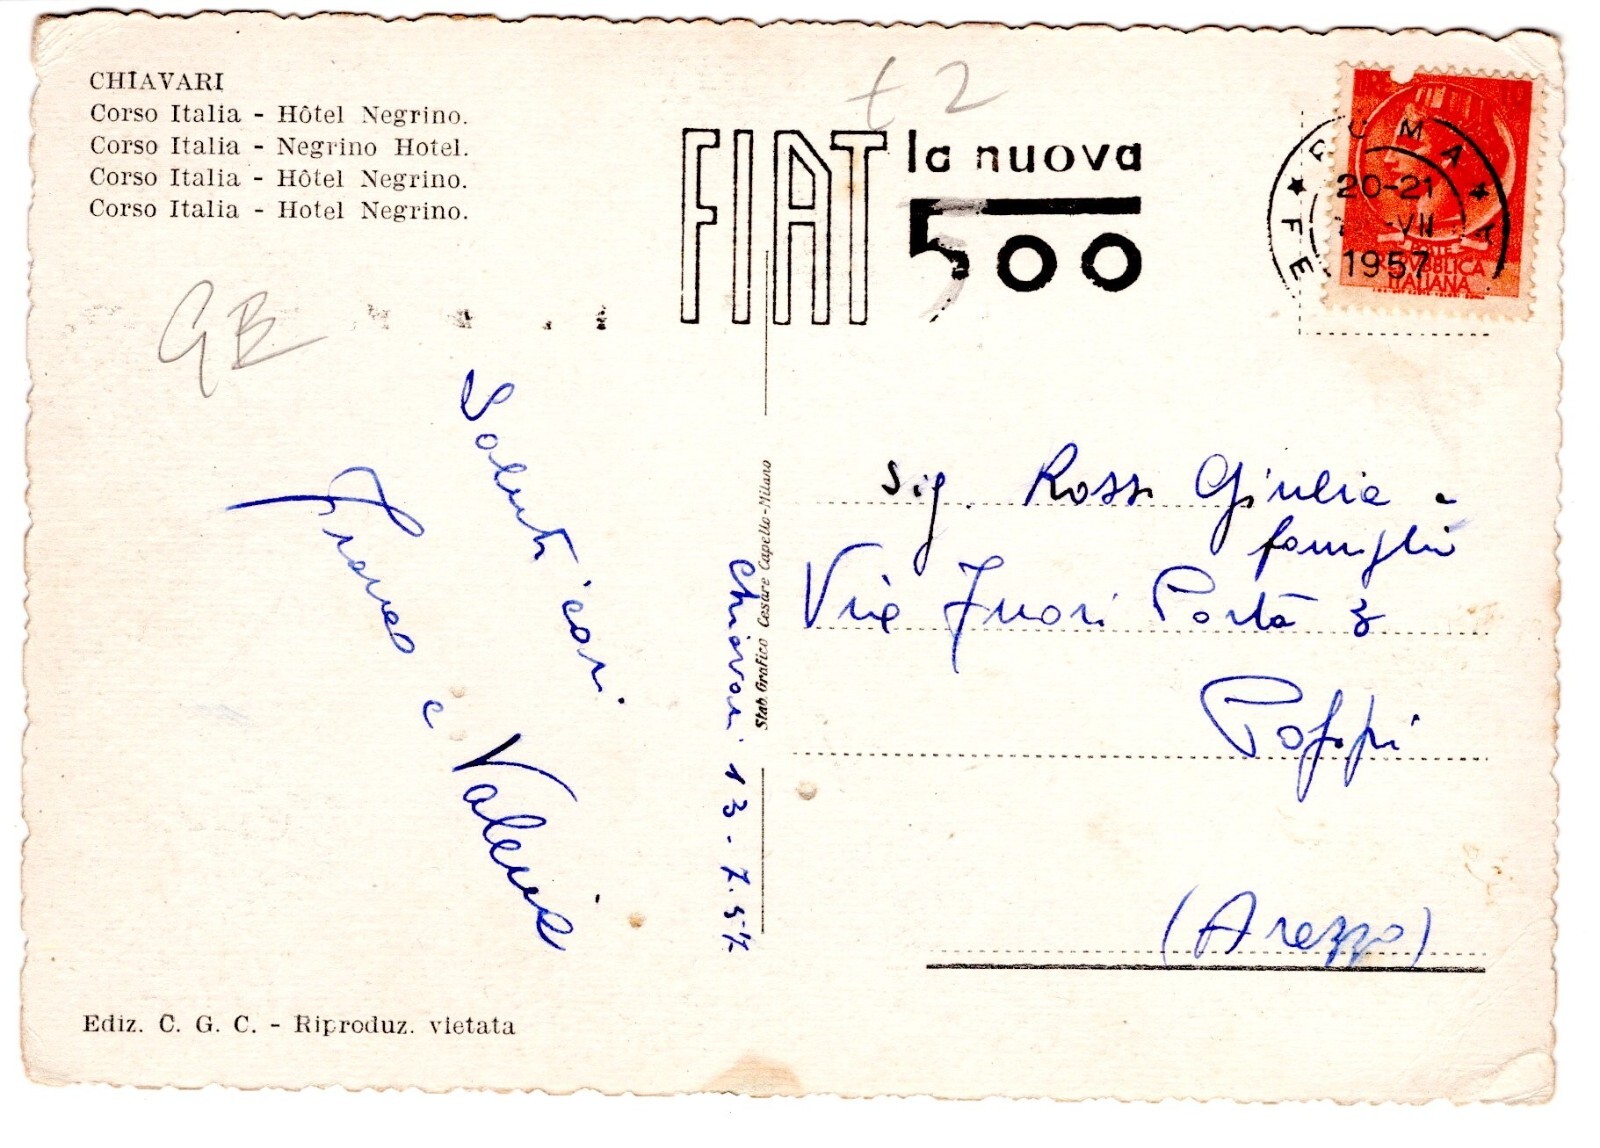 CHIAVARI
Corso Italia - Hôtel Negrino.
Corso Italia - Negrino Hotel.
Corso Italia - Hôtel Negrino.
Corso Italia - Hotel Negrino.
t 2
FIAT la nuova
500
ROMA
20-21
-VII
1957
FE
POSTE
REPVBBLICA
ITALIANA
GB
Saluti cari
Franco e Valeria
Chiavari 13-7-57
Stab. Grafico Cesare Capello-Milano
Sig. Rossi Giulia e
famiglia
Via Fuori Porta 3
Poppi
(Arezzo)
Ediz. C. G. C. - Riproduz. vietata